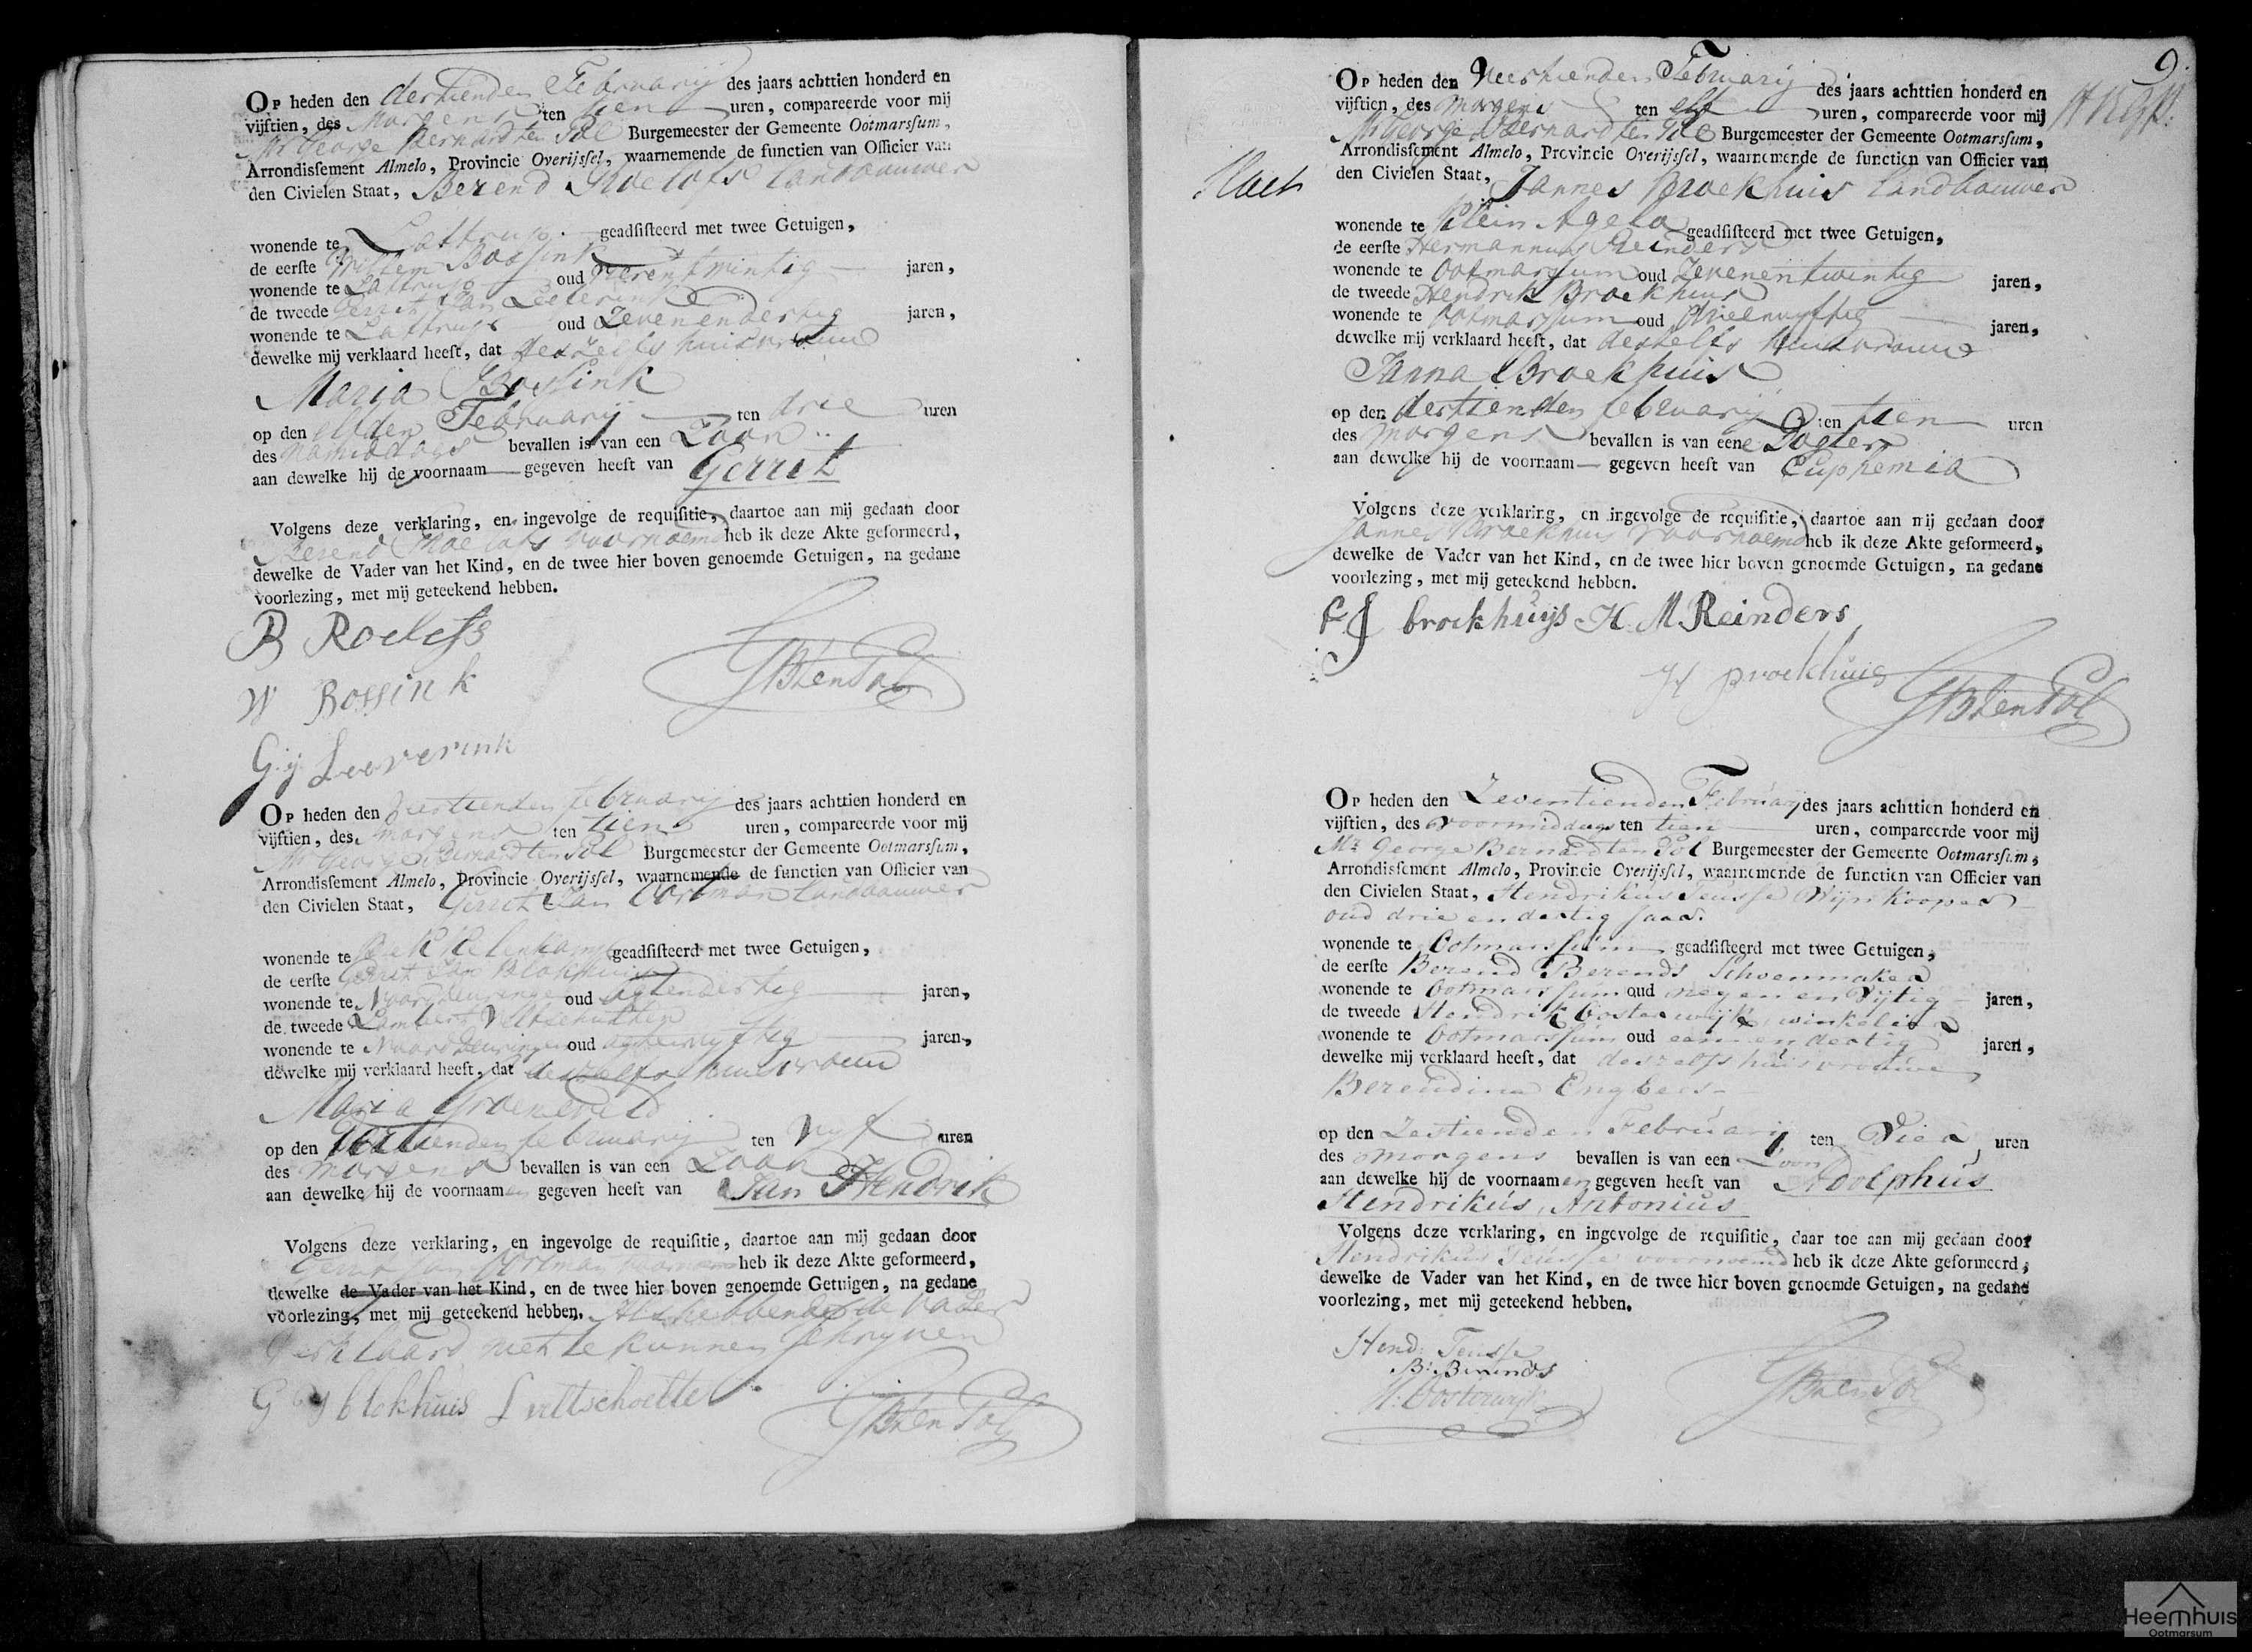 Op heden den dertienden Februarij des jaars achttien honderd en
vijftien, des Morgens ten tien uren, compareerde voor mij
Mr George Bernard ten Pol Burgemeester der Gemeente Ootmarssum,
Arrondissement Almelo, Provincie Overijssel, waarnemende de functien van Officier van
den Civielen Staat, Berend Roelofs landbouwer
wonende te Lattrup geadsisteerd met twee Getuigen,
de eerste Willem Bossink
wonende te Lattrup oud jaren,
de tweede Gerrit Jan Leeverink
wonende te Lattrup oud Zevenendertig jaren,
dewelke mij verklaard heeft, dat deszelfs huisvrouw
Maria Bossink
op den elfden Februarij ten drie uren
des Namiddags bevallen is van een Zoon
aan dewelke hij de voornaam gegeven heeft van Gerrit
Volgens deze verklaring, en ingevolge de requisitie, daartoe aan mij gedaan door
Berend Roelofs voornoemd heb ik deze Akte geformeerd,
dewelke de Vader van het Kind, en de twee hier boven genoemde Getuigen, na gedane
voorlezing, met mij geteekend hebben.
B Roelefs
W Bossink
GBtenPol
G.ij. Leeverink
Op heden den Veertienden februarij des jaars achttien honderd en
vijftien, des morgens ten tien uren, compareerde voor mij
Mr George Bernard ten Pol Burgemeester der Gemeente Ootmarssum,
Arrondissement Almelo, Provincie Overijssel, waarnemende de functien van Officier van
den Civielen Staat, Gerrit Jan Oortman landbouwer
wonende te Brekkelenkamp geadsisteerd met twee Getuigen,
de eerste Gerrit Jan Blokhuis
wonende te Noorddeuringen oud agtendertig jaren,
de tweede Lambert
wonende te Noorddeuringen oud jaren,
dewelke mij verklaard heeft, dat deszelfs huisvrouw
Maria Groeneveld
op den februarij ten vyf uren
des morgens bevallen is van een Zoon
aan dewelke hij de voornaamen gegeven heeft van Jan Hendrik
Volgens deze verklaring, en ingevolge de requisitie, daartoe aan mij gedaan door
Gerrit Jan Oortman voornoemd heb ik deze Akte geformeerd,
dewelke de Vader van het Kind, en de twee hier boven genoemde Getuigen, na gedane
voorlezing, met mij geteekend hebben. de Vader
Verklaard niet te kunnen schryven
G ij blokhuis L veltschoette
GBtenPol
9.
Op heden den Veertienden Februarij des jaars achttien honderd en
vijftien, des Morgens ten elf uren, compareerde voor mij
Mr George Bernard ten Pol Burgemeester der Gemeente Ootmarssum,
Arrondissement Almelo, Provincie Overijssel, waarnemende de functien van Officier van
den Civielen Staat, Jannes Broekhuis landbouwer
wonende te Klein Agelo geadsisteerd met twee Getuigen,
de eerste Hermannus Reinders
wonende te Ootmarsum oud Zevenentwintig jaren,
de tweede Hendrik Broekhuis
wonende te Ootmarssum oud jaren,
dewelke mij verklaard heeft, dat deszelfs huisvrouw
Janna Broekhuis
op den dertienden februarij ten tien uren
des Morgens bevallen is van eene Dogter
aan dewelke hij de voornaam gegeven heeft van Euphemia
Volgens deze verklaring, en ingevolge de requisitie, daartoe aan mij gedaan door
Jannes Broekhuis voornoemd heb ik deze Akte geformeerd,
dewelke de Vader van het Kind, en de twee hier boven genoemde Getuigen, na gedane
voorlezing, met mij geteekend hebben.
J broekhuijs H. M. Reinders
H Broekhuis GBtenPol
Op heden den Zeventienden Februarij des jaars achttien honderd en
vijftien, des voormiddags ten tien uren, compareerde voor mij
Mr George Bernard ten Pol Burgemeester der Gemeente Ootmarssum,
Arrondissement Almelo, Provincie Overijssel, waarnemende de functien van Officier van
den Civielen Staat, Hendrikus Teusse Wijnkooper
oud drie en dertig jaar.
wonende te Ootmarssum geadsisteerd met twee Getuigen,
de eerste Berend Berends Schoenmaker
wonende te Ootmarssum oud negen en vijftig jaren,
de tweede Hendrik Oosterwijk, winkelier
wonende te Ootmarssum oud een en dertig jaren,
dewelke mij verklaard heeft, dat deszelfs huisvrouwe
Berendina Engbers
op den Zestienden Februarij ten Vier uren
des morgens bevallen is van een Zoon
aan dewelke hij de voornaamen gegeven heeft van Adolphus
Hendrikus, Antonius
Volgens deze verklaring, en ingevolge de requisitie, daar toe aan mij gedaan door
Hendrikus Teusse voornoemd heb ik deze Akte geformeerd,
dewelke de Vader van het Kind, en de twee hier boven genoemde Getuigen, na gedane
voorlezing, met mij geteekend hebben.
Hend: Teusse
B: Berends
H: Oosterwijk
GBtenPol
Heemhuis
Ootmarsum